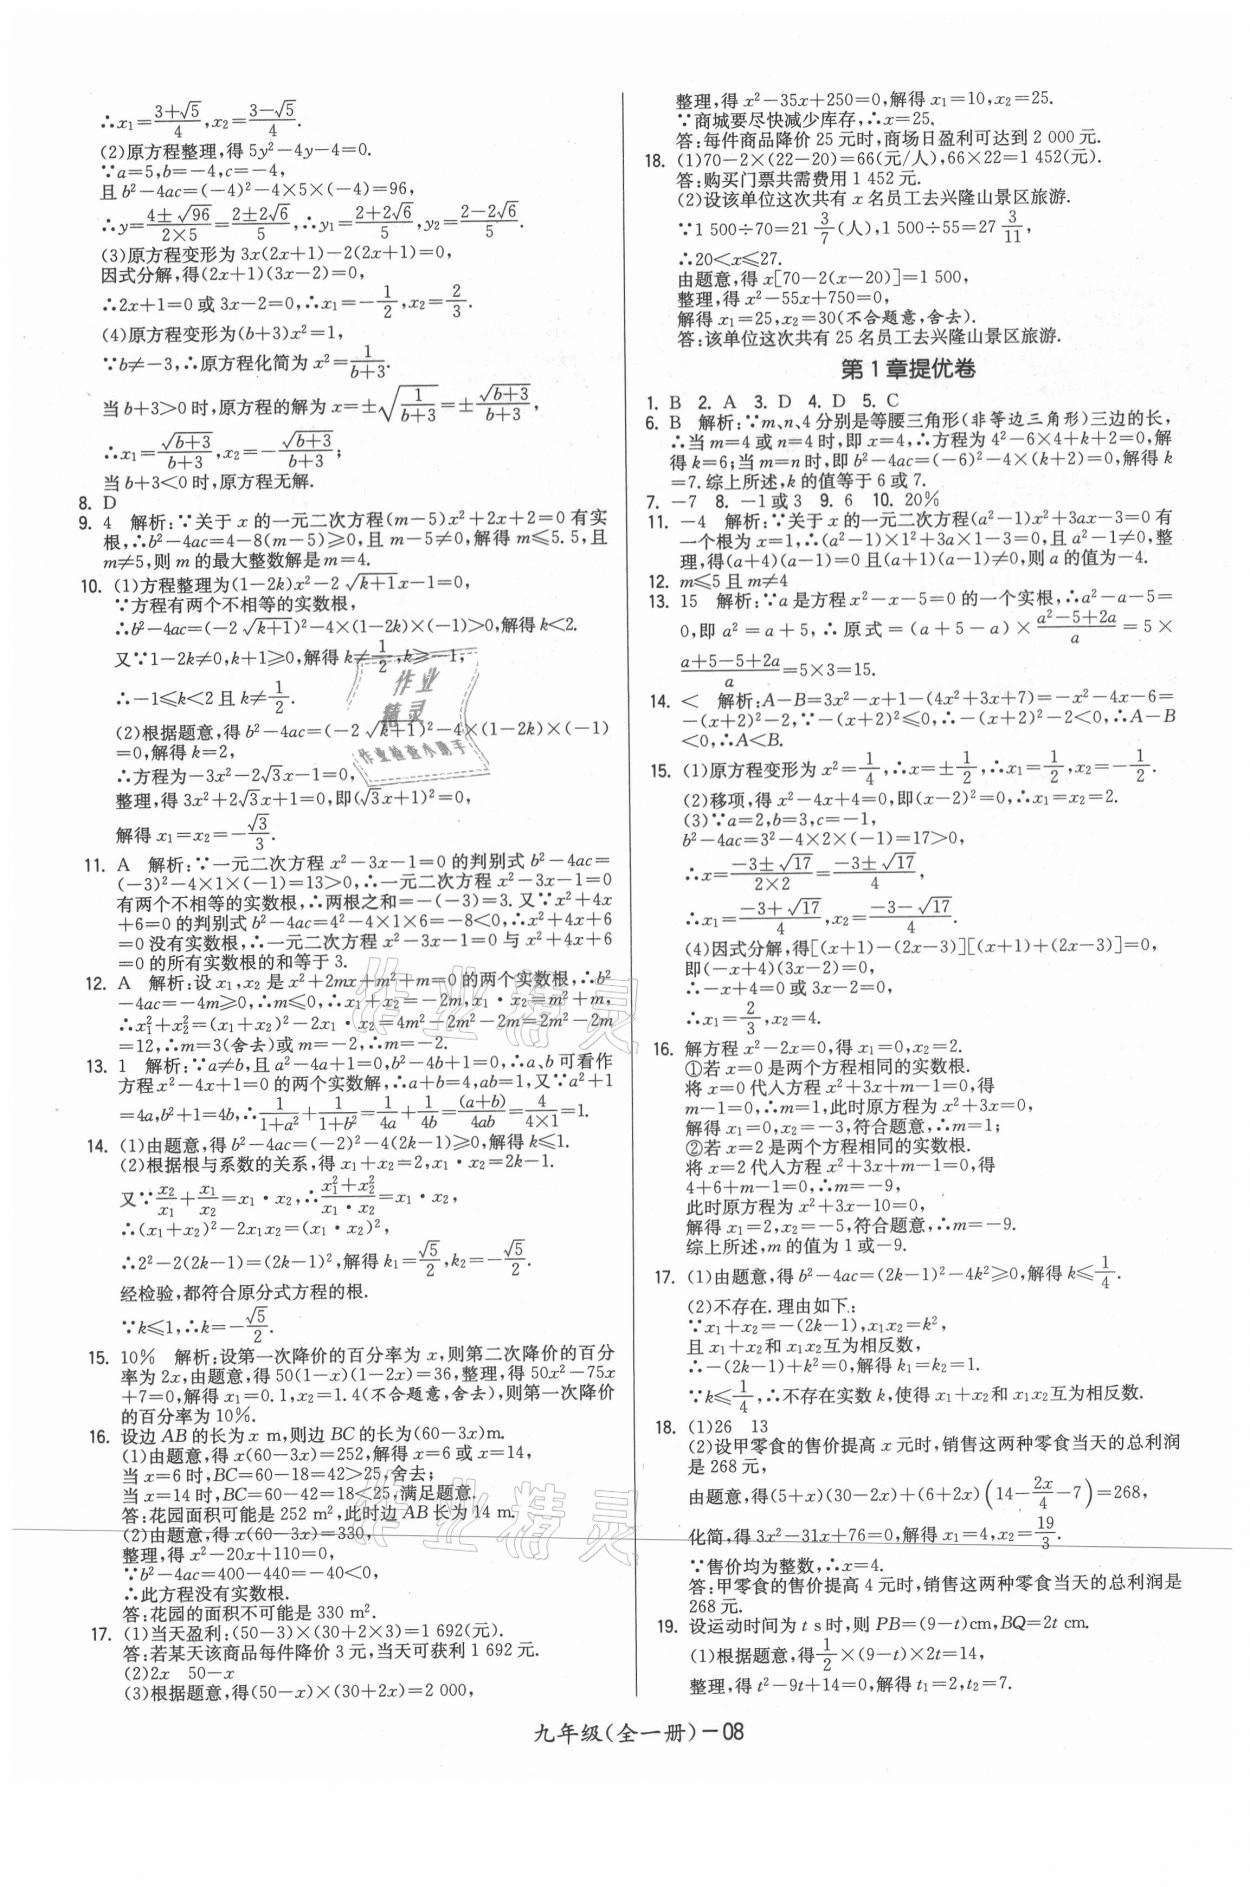 ∴x₁=(3+√5)/4,x₂=(3−√5)/4.
(2)原方程整理,得 5y²−4y−4=0.
∵a=5,b=−4,c=−4,
且 b²−4ac=(−4)²−4×5×(−4)=96,
∴y=(4±√96)/(2×5)=(2±2√6)/5,∴y₁=(2+2√6)/5,y₂=(2−2√6)/5.
(3)原方程变形为 3x(2x+1)−2(2x+1)=0,
因式分解,得(2x+1)(3x−2)=0,
∴2x+1=0 或 3x−2=0,∴x₁=−1/2,x₂=2/3.
(4)原方程变形为(b+3)x²=1,
∵b≠−3,∴原方程化简为 x²=1/(b+3).
当 b+3>0 时,原方程的解为 x=±√(1/(b+3))=±√(b+3)/(b+3),
∴x₁=√(b+3)/(b+3),x₂=−√(b+3)/(b+3);
当 b+3<0 时,原方程无解.
8. D
9. 4 解析:∵关于 x 的一元二次方程(m−5)x²+2x+2=0 有实
根,∴b²−4ac=4−8(m−5)≥0,且 m−5≠0,解得 m≤5.5,且
m≠5,则 m 的最大整数解是 m=4.
10. (1)方程整理为(1−2k)x²−2√(k+1)x−1=0,
∵方程有两个不相等的实数根,
∴b²−4ac=(−2√(k+1))²−4×(1−2k)×(−1)>0,解得 k<2.
又∵1−2k≠0,k+1≥0,解得 k≠1/2,k≥−1,
∴−1≤k<2 且 k≠1/2.
(2)根据题意,得 b²−4ac=(−2√(k+1))²−4×(1−2k)×(−1)
=0,解得 k=2,
∴方程为−3x²−2√3x−1=0,
整理,得 3x²+2√3x+1=0,即(√3x+1)²=0,
解得 x₁=x₂=−√3/3.
11. A 解析:∵一元二次方程 x²−3x−1=0 的判别式 b²−4ac=
(−3)²−4×1×(−1)=13>0,∴一元二次方程 x²−3x−1=0
有两个不相等的实数根,∴两根之和=−(−3)=3.又∵x²+4x
+6=0 的判别式 b²−4ac=4²−4×1×6=−8<0,∴x²+4x+6
=0 没有实数根,∴一元二次方程 x²−3x−1=0 与 x²+4x+6
=0 的所有实数根的和等于 3.
12. A 解析:设 x₁,x₂ 是 x²+2mx+m²+m=0 的两个实数根,∴b²
−4ac=−4m≥0,∴m≤0,∴x₁+x₂=−2m,x₁·x₂=m²+m,
∴x₁²+x₂²=(x₁+x₂)²−2x₁·x₂=4m²−2m²−2m=2m²−2m
=12,∴m=3(舍去)或 m=−2,∴m=−2.
13. 1 解析:∵a≠b,且 a²−4a+1=0,b²−4b+1=0,∴a、b 可看作
方程 x²−4x+1=0 的两个实数解,∴a+b=4,ab=1,又∵a²+1
=4a,b²+1=4b,∴1/(1+a²)+1/(1+b²)=1/4a+1/4b=(a+b)/4ab=4/(4×1)=1.
14. (1)由题意,得 b²−4ac=(−2)²−4(2k−1)≥0,解得 k≤1.
(2)根据根与系数的关系,得 x₁+x₂=2,x₁·x₂=2k−1.
又∵x₂/x₁+x₁/x₂=x₁·x₂,∴(x₁²+x₂²)/(x₁·x₂)=x₁·x₂,
∴(x₁+x₂)²−2x₁x₂=(x₁·x₂)²,
∴2²−2(2k−1)=(2k−1)²,解得 k₁=√5/2,k₂=−√5/2.
经检验,都符合原分式方程的根.
∵k≤1,∴k=−√5/2.
15. 10% 解析:设第一次降价的百分率为 x,则第二次降价的百分
率为 2x,由题意,得 50(1−x)(1−2x)=36,整理,得 50x²−75x
+7=0,解得 x₁=0.1,x₂=1.4(不合题意,舍去),则第一次降价
的百分率为 10%.
16. 设边 AB 的长为 x m,则边 BC 的长为(60−3x)m.
(1)由题意,得 x(60−3x)=252,解得 x=6 或 x=14,
当 x=6 时,BC=60−18=42>25,舍去;
当 x=14 时,BC=60−42=18<25,满足题意.
答:花园面积可能是 252 m²,此时边 AB 长为 14 m.
(2)由题意,得 x(60−3x)=330,
整理,得 x²−20x+110=0,
∵b²−4ac=400−440=−40<0,
∴此方程没有实数根.
答:花园的面积不可能是 330 m².
17. (1)当天盈利:(50−3)×(30+2×3)=1 692(元).
答:若某天该商品每件降价 3 元,当天可获利 1 692 元.
(2)2x 50−x
(3)根据题意,得(50−x)×(30+2x)=2 000,
整理,得 x²−35x+250=0,解得 x₁=10,x₂=25.
∵商城要尽快减少库存,∴x=25.
答:每件商品降价 25 元时,商场日盈利可达到 2 000 元.
18. (1)70−2×(22−20)=66(元/人),66×22=1 452(元).
答:购买门票共需费用 1 452 元.
(2)设该单位这次共有 x 名员工去兴隆山景区旅游.
∵1 500÷70=21 3/7(人),1 500÷55=27 3/11,
∴20<x≤27.
由题意,得 x[70−2(x−20)]=1 500,
整理,得 x²−55x+750=0,
解得 x₁=25,x₂=30(不合题意,舍去).
答:该单位这次共有 25 名员工去兴隆山景区旅游.
第 1 章提优卷
1. B 2. A 3. D 4. D 5. C
6. B 解析:∵m、n、4 分别是等腰三角形(非等边三角形)三边的长,
∴当 m=4 或 n=4 时,即 x=4,∴方程为 4²−6×4+k+2=0,解
得 k=6;当 m=n 时,即 b²−4ac=(−6)²−4×(k+2)=0,解得 k
=7.综上所述,k 的值等于 6 或 7.
7. −7 8. −1或 3 9. 6 10. 20%
11. −4 解析:∵关于 x 的一元二次方程(a²−1)x²+3ax−3=0 有
一个根为 x=1,∴(a²−1)×1²+3a×1−3=0,且 a²−1≠0,整
理,得(a+4)(a−1)=0 且(a+1)(a−1)≠0,则 a 的值为−4.
12. m≤5 且 m≠4
13. 15 解析:∵a 是方程 x²−x−5=0 的一个实根,∴a²−a−5=
0,即 a²=a+5,∴原式=(a+5−a)×(a²−5+2a)/a=5×
(a+5−5+2a)/a=5×3=15.
14. < 解析:A−B=3x²−x+1−(4x²+3x+7)=−x²−4x−6=
−(x+2)²−2,∵−(x+2)²≤0,∴−(x+2)²−2<0,∴A−B
<0,∴A<B.
15. (1)原方程变形为 x²=1/4,∴x=±1/2,∴x₁=1/2,x₂=−1/2.
(2)移项,得 x²−4x+4=0,即(x−2)²=0,∴x₁=x₂=2.
(3)∵a=2,b=3,c=−1,
b²−4ac=3²−4×2×(−1)=17>0,
∴x=(−3±√17)/(2×2)=(−3±√17)/4,
∴x₁=(−3+√17)/4,x₂=(−3−√17)/4.
(4)因式分解,得[(x+1)−(2x−3)][(x+1)+(2x−3)]=0,
即(−x+4)(3x−2)=0,
∴−x+4=0 或 3x−2=0,
∴x₁=2/3,x₂=4.
16. 解方程 x²−2x=0,得 x₁=0,x₂=2.
①若 x=0 是两个方程相同的实数根.
将 x=0 代入方程 x²+3x+m−1=0,得
m−1=0,∴m=1,此时原方程为 x²+3x=0,
解得 x₁=0,x₂=−3,符合题意,∴m=1;
②若 x=2 是两个方程相同的实数根.
将 x=2 代入方程 x²+3x+m−1=0,得
4+6+m−1=0,∴m=−9,
此时原方程为 x²+3x−10=0,
解得 x₁=2,x₂=−5,符合题意,∴m=−9.
综上所述,m 的值为 1 或−9.
17. (1)由题意,得 b²−4ac=(2k−1)²−4k²≥0,解得 k≤1/4.
(2)不存在.理由如下:
∵x₁+x₂=−(2k−1),x₁x₂=k²,
且 x₁+x₂和 x₁x₂互为相反数,
∴−(2k−1)+k²=0,解得 k₁=k₂=1.
∵k≤1/4,∴不存在实数 k,使得 x₁+x₂和 x₁x₂互为相反数.
18. (1)26 13
(2)设甲零食的售价提高 x 元时,销售这两种零食当天的总利润
是 268 元,
由题意,得(5+x)(30−2x)+(6+2x)(14−2x/4−7)=268,
化简,得 3x²−31x+76=0,解得 x₁=4,x₂=19/3.
∵售价均为整数,∴x=4.
答:甲零食的售价提高 4 元时,销售这两种零食当天的总利润是
268 元.
19. 设运动时间为 t s时,则 PB=(9−t)cm,BQ=2t cm.
(1)根据题意,得1/2×(9−t)×2t=14,
整理,得 t²−9t+14=0,解得 t₁=2,t₂=7.
九年级(全一册)−08
作业
精灵
作业检查小助手
作业精灵
作业精灵